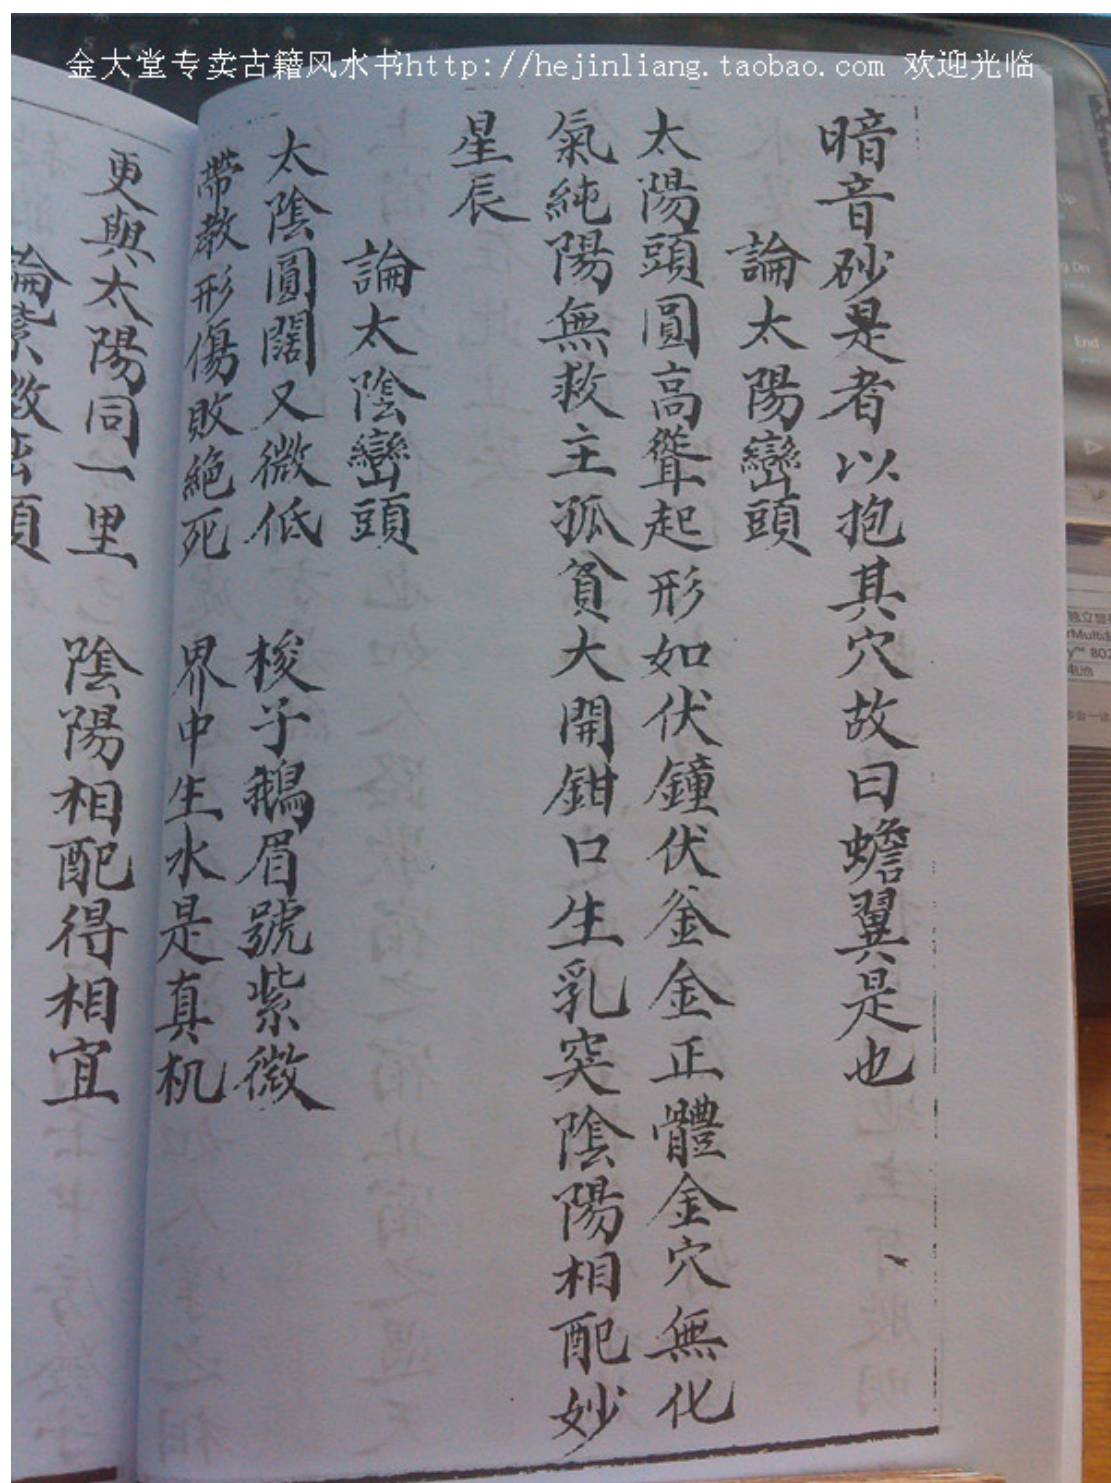 金大堂专卖古籍风水书http://hejinliang.taobao.com 欢迎光临
暗音砂是者以抱其穴故曰蟾翼是也
論太陽巒頭
太陽頭圓高聳起形如伏鐘伏釜金正體金穴無化
氣純陽無救主孤貧大開鉗口生乳突陰陽相配妙
星辰
論太陰巒頭
太陰圓闊又微低 梭子鵝眉號紫微
帶教形傷敗絕死 界中生水是真机
更與太陽同一里 陰陽相配得相宜
論紫微巒頭